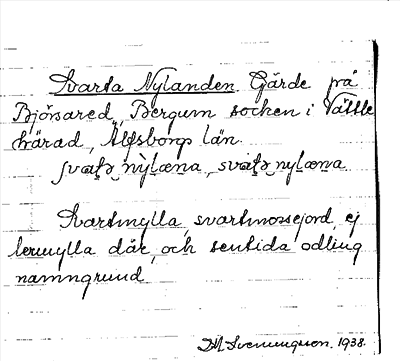 Svarta Nylanden. Gärde på
Björsared, Bergum socken i Vättle
härad, Älfsborgs län.
svat̯ə nỳlæna, svat̯ə nylæna.
Svartmylla, svartmossejord, ej
lermylla där, och sentida odling
namngrund
1938.